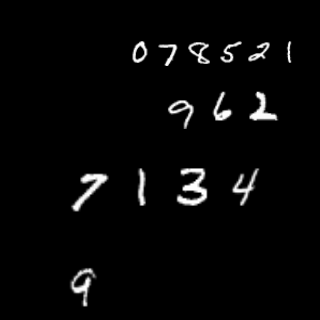 078521
962
7134
9